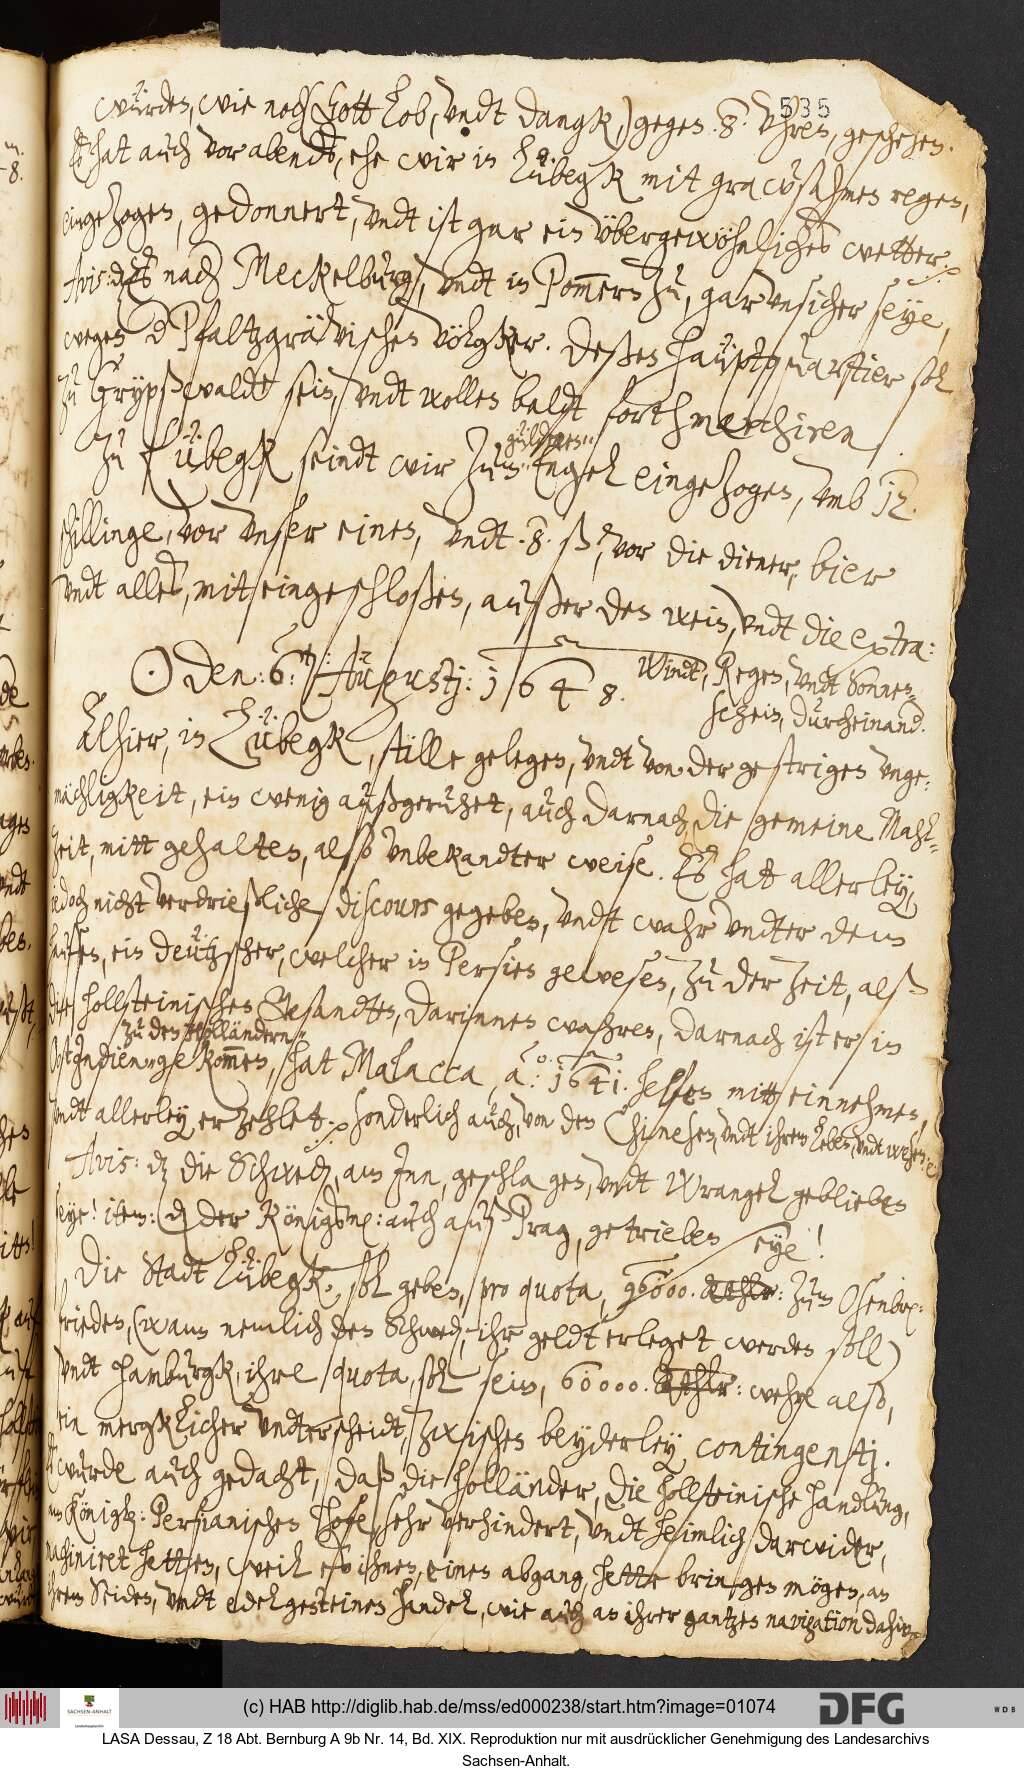 535
würden, wie noch (Gott Lob, vndt dangk,) gegen .8. Vhren, geschehen.
Es hat auch vor abends, ehe wir in Lübegk mit grawsahmen regen,
eingezogen, gedonnert, vndt ist gar ein vbergewöhnliches wetter.
Avis: daß es nach Meckelburg, vndt in Pommern zu, gar vnsicher seye,
wegen der Pfaltzgrävischen völgker. deßen hauptquartier sol
zu Grypßwaldt sein, vndt wollen baldt forth marchiren
Zu Lübegk seindt wir zum güldenen Engel eingezogen, vmb 12.
schillinge, vor vnser einen, vndt .8. ß, vor die diener, bier
vndt alles, mit eingeschloßen, außer den wein, vndt die extra:
⊙ den: 6.ten Augustj: 1648.
Windt, Regen, vndt Sonnen-
schein, durcheinand.
Alhier, in Lübegk, stille gelegen, vndt von der gestrigen vnge-
mächligkeit, ein wenig außgeruhet, auch darnach, die gemeine Mahl-
zeit, mitt gehalten, also vnbekandter weise. Es hatt allerley,
iedoch nicht verdrießliche discours gegeben, vndt wahr vndter dem
hauffen, ein deützscher, welcher in Persien gewesen, zu der zeit, alß
die hollsteinischen Gesandten, darinnen wahren, darnach ist er in
OstJndien zu den Holländern gekommen, hat Malacca, ao: 1641. helffen mitt einnehmen,
vndt allerley erzehlet. sonderlich auch, von den Chinesen, vndt ihrem leben, vndt wesen.
Avis: daß die Schwed, am Jnn, geschlagen, vndt Wrangel geblieben
seye! item: daß der Königsm: auch auß Prag, getrieben seye!
Die Stadt Lübegk, sol geben, pro quota, 96000. Rthlr: zum Osenbr:
frieden, (wann nemlich den Schwed, ihr geldt erleget werden soll)
vndt hamburgk, ihre quota, sol sein, 60000. Rthlr: wehre also,
ein mergklicher vndterscheidt, zwischen beyderley contingentj.
Es wurde auch gedacht, daß die holländer, die hollsteinische handlung,
am Königl: Persianischen Hofe, sehr verhindert, vndt heimlich darwider,
machiniret hetten, weil es ihnen, einen abgang, hette bringen mögen, an
ihrem Seiden, vndt edelgesteinen handel, wie auch an ihrer gantzen navigation dahin
(c) HAB http://diglib.hab.de/mss/ed000238/start.htm?image=01074
SACHSEN-ANHALT
DFG
WDB
LASA Dessau, Z 18 Abt. Bernburg A 9b Nr. 14, Bd. XIX. Reproduktion nur mit ausdrücklicher Genehmigung des Landesarchivs
Sachsen-Anhalt.